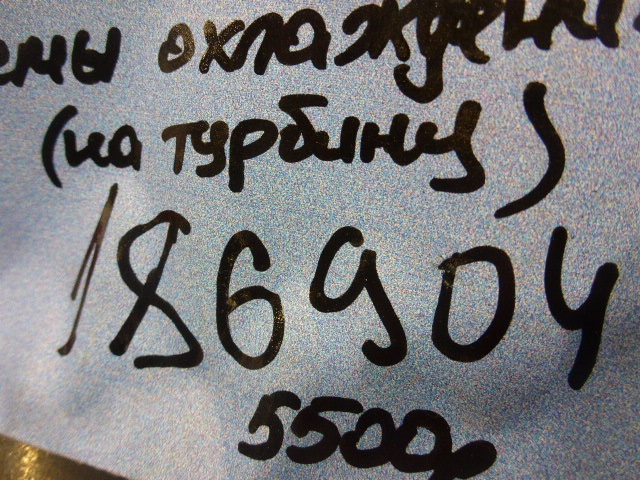 емы охлажден
(на турбину)
186904
5500р